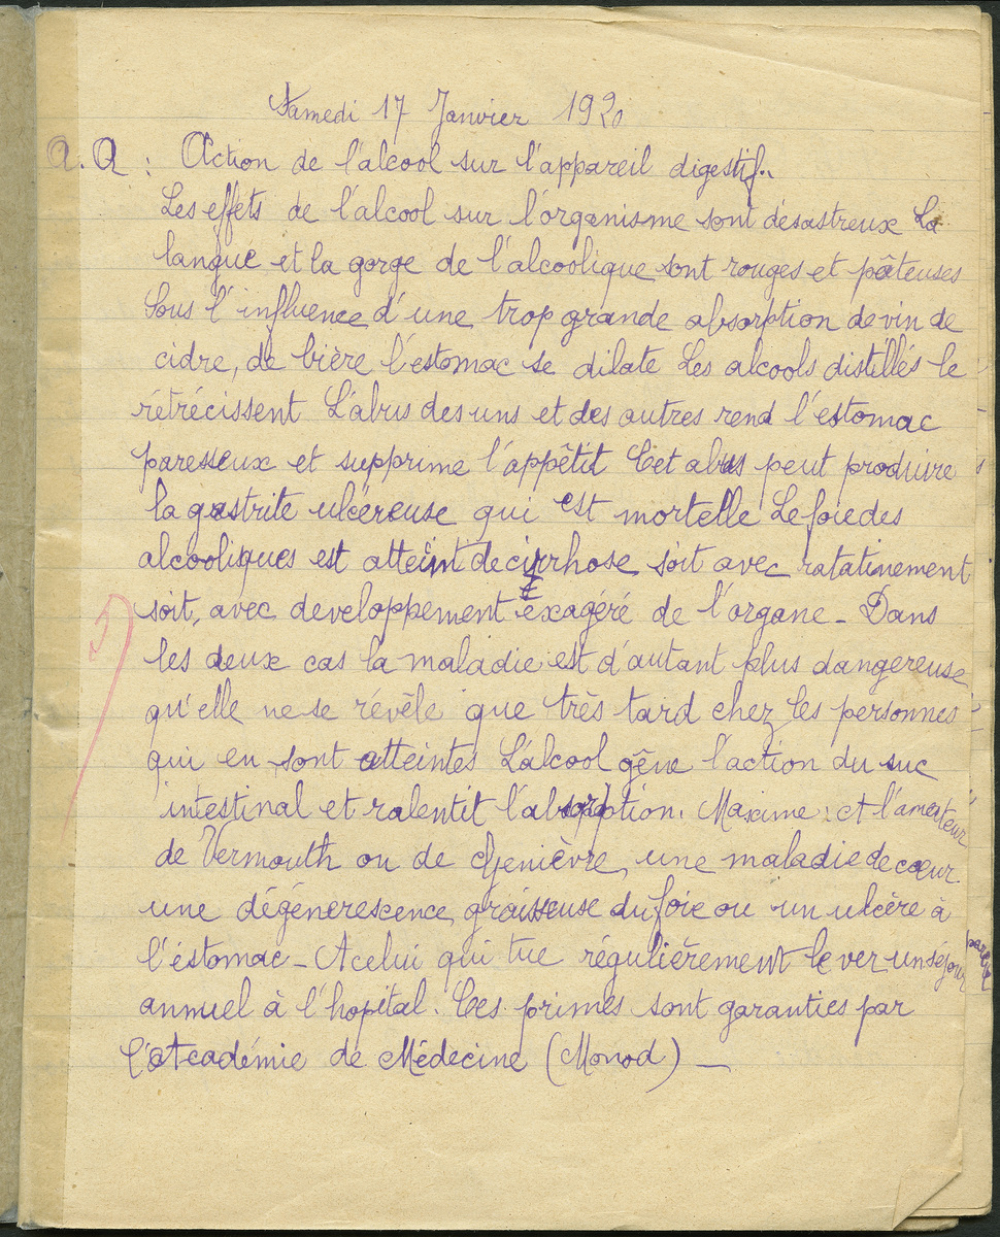 Samedi 17 Janvier 1920
A.A : Action de l'alcool sur l'appareil digestif.
Les effets de l'alcool sur l'organisme sont désastreux La
langue et la gorge de l'alcoolique sont rouges et pâteuses
Sous l'influence d'une trop grande absorption de vin de
cidre, de bière l'estomac se dilate Les alcools distillés le
rétrécissent L'abus des uns et des autres rend l'estomac
paresseux et supprime l'appêtit Cet abus peut produire
la gastrite ulcéreuse qui est mortelle Le foie des
alcooliques est atteint de cirrhose soit avec ratatinement
soit, avec developpement exagéré de l'organe - Dans
les deux cas la maladie est d'autant plus dangereuse
qu'elle ne se révèle que très tard chez les personnes
qui en sont atteintes L'alcool gêne l'action du suc
intestinal et ralentit l'absorption. Maxime : A l'amateur
de Vermouth ou de Genièvre, une maladie de cœur
une dégénerescence graisseuse du foie ou un ulcère à
l'éstomac - A celui qui tue régulièrement le ver un séjour
annuel à l'hopital. Ces primes sont garanties par
l'Académie de Médecine (Monod) -